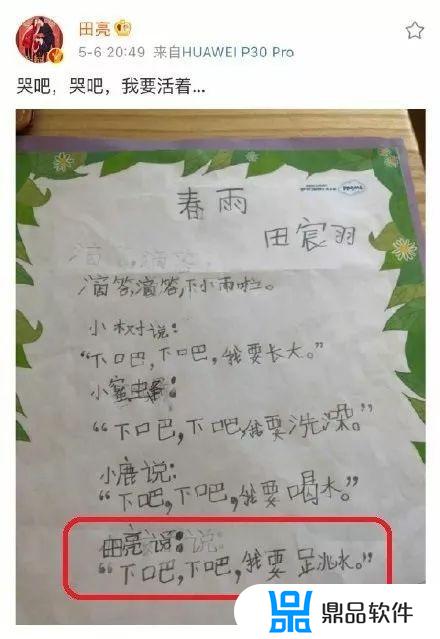 田亮
5-6 20:49 来自HUAWEI P30 Pro
哭吧，哭吧，我要活着...
春雨
田宸羽
滴答,滴答,
滴答,滴答,下小雨啦。
小树说：
“下吧,下吧,我要长大。”
小蜜蜂：
“下吧,下吧,我要洗澡。”
小唐说：
“下吧,下吧,我要喝水。”
田亮说：说：
“下吧,下吧,我要跳水。”
鼎品软件